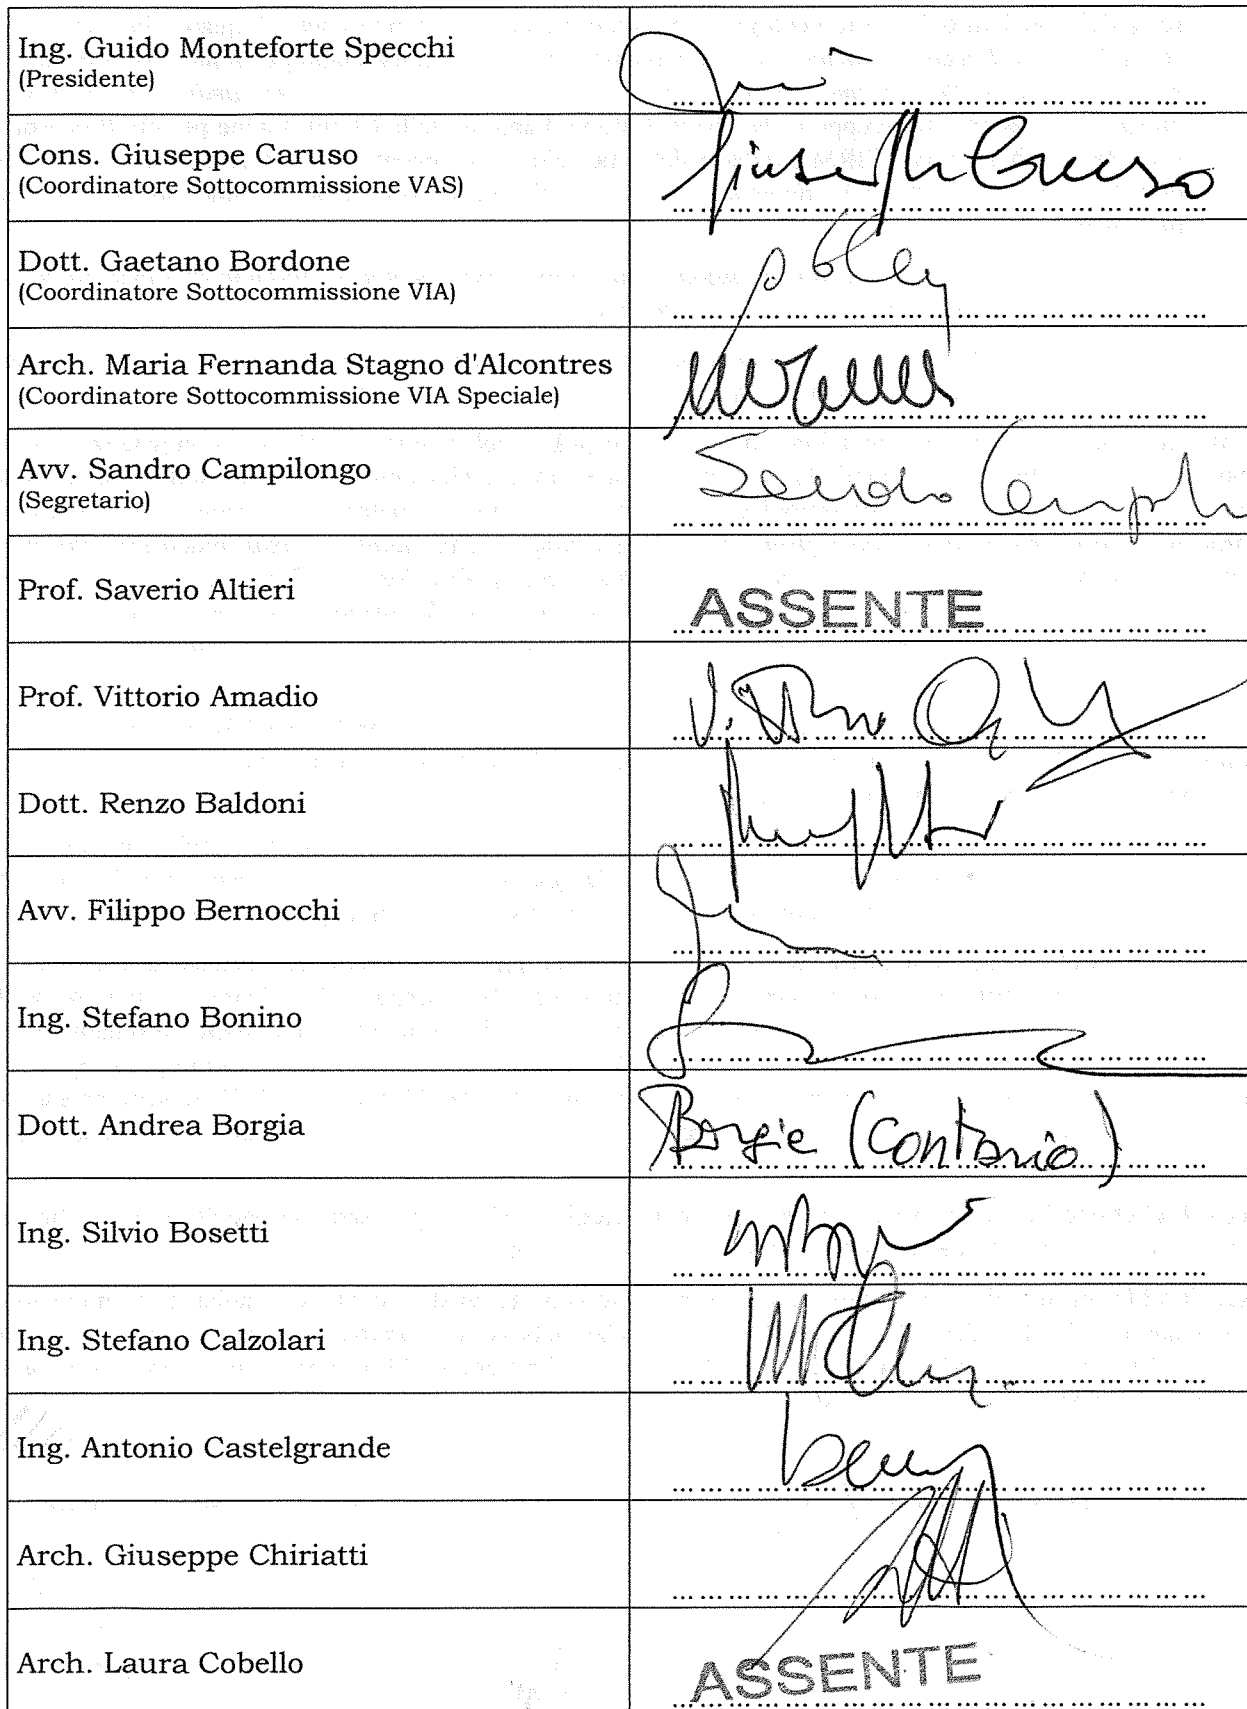 Ing. Guido Monteforte Specchi
(Presidente)
Cons. Giuseppe Caruso
(Coordinatore Sottocommissione VAS)
Giuseppe Caruso
Dott. Gaetano Bordone
(Coordinatore Sottocommissione VIA)
Arch. Maria Fernanda Stagno d'Alcontres
(Coordinatore Sottocommissione VIA Speciale)
Avv. Sandro Campilongo
(Segretario)
Sandro
Prof. Saverio Altieri
ASSENTE
Prof. Vittorio Amadio
Dott. Renzo Baldoni
Avv. Filippo Bernocchi
Ing. Stefano Bonino
Dott. Andrea Borgia
Borgia (contrario)
Ing. Silvio Bosetti
Ing. Stefano Calzolari
Ing. Antonio Castelgrande
Arch. Giuseppe Chiriatti
Arch. Laura Cobello
ASSENTE